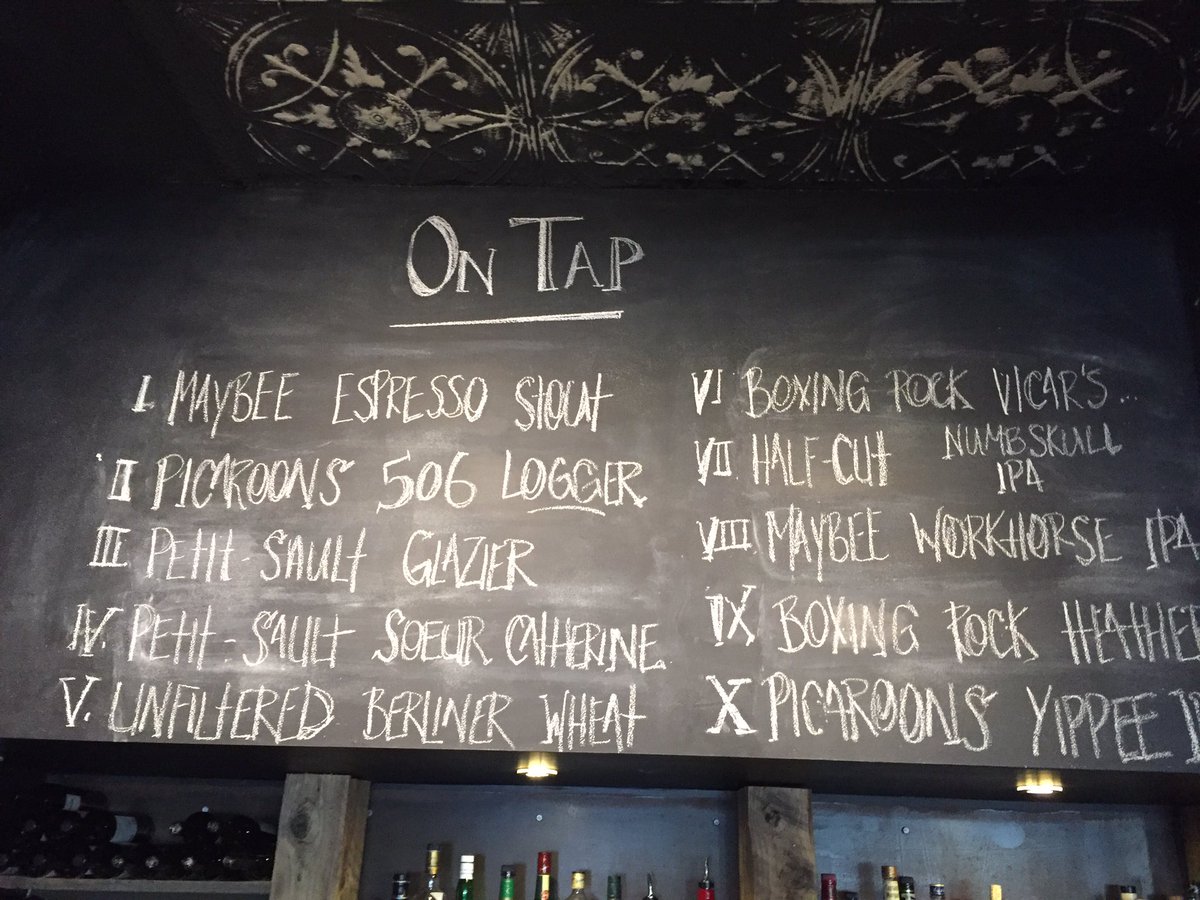 On Tap
I. MAYBEE ESPRESSO Stout
II PICAROONS 506 LOGGER
III PEtit-SAULt GLAZIER
IV. PEtit-SAULt SOEUR CATHERINE
V. UNFILtERED BERLINER WHEAt
VI BOXING ROCK VICAR'S...
VII HALF-CUt NUMBSKULL
IPA
VIII MAYBEE WORKHORSE IPA
IX BOXING ROCK
X PICAROONS YIPPEE